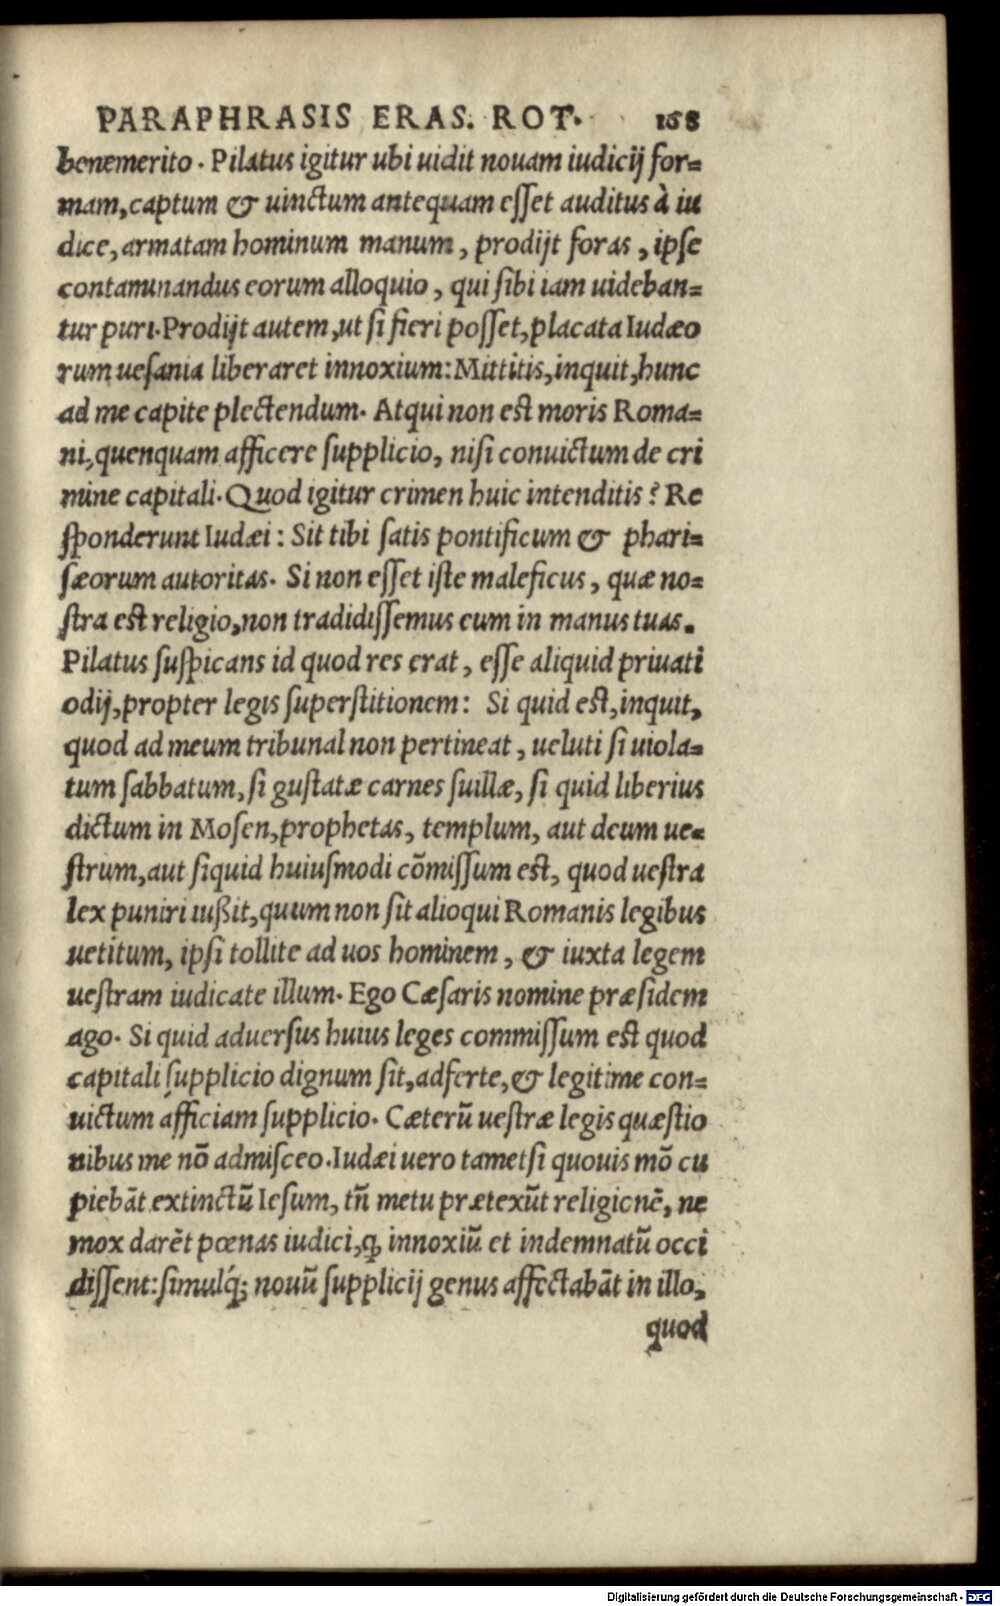 PARAPHRASIS ERAS. ROT. 168
benemerito. Pilatus igitur ubi uidit nouam iudicij for=
mam, captum & uinctum antequam esset auditus à iu
dice, armatam hominum manum, prodijt foras, ipse
contaminandus eorum alloquio, qui sibi iam uideban=
tur puri. Prodijt autem, ut si fieri posset, placata Iudæo
rum uesania liberaret innoxium: Mittitis, inquit, hunc
ad me capite plectendum. Atqui non est moris Roma=
ni, quenquam afficere supplicio, nisi conuictum de cri
mine capitali. Quod igitur crimen huic intenditis? Re
sponderunt Iudæi: Sit tibi satis pontificum & phari=
sæorum autoritas. Si non esset iste maleficus, quæ no=
stra est religio, non tradidissemus eum in manus tuas.
Pilatus suspicans id quod res erat, esse aliquid priuati
odij, propter legis superstitionem: Si quid est, inquit,
quod ad meum tribunal non pertineat, ueluti si uiola=
tum sabbatum, si gustatæ carnes suillæ, si quid liberius
dictum in Mosen, prophetas, templum, aut deum ue=
strum, aut siquid huiusmodi cōmissum est, quod uestra
lex puniri iußit, quum non sit alioqui Romanis legibus
uetitum, ipsi tollite ad uos hominem, & iuxta legem
uestram iudicate illum. Ego Cæsaris nomine præsidem
ago. Si quid aduersus huius leges commissum est quod
capitali supplicio dignum sit, adferte, & legitime con=
uictum afficiam supplicio. Cæterū uestræ legis quæstio
nibus me nō admisceo. Iudæi uero tametsi quouis mō cu
piebāt extinctū Iesum, tñ metu prætexūt religionē, ne
mox darēt pœnas iudici, ꝙ innoxiū et indemnatū occi
dissent: simulq́; nouū supplicij genus affectabāt in illo,
quod
Digitalisierung gefördert durch die Deutsche Forschungsgemeinschaft - DFG